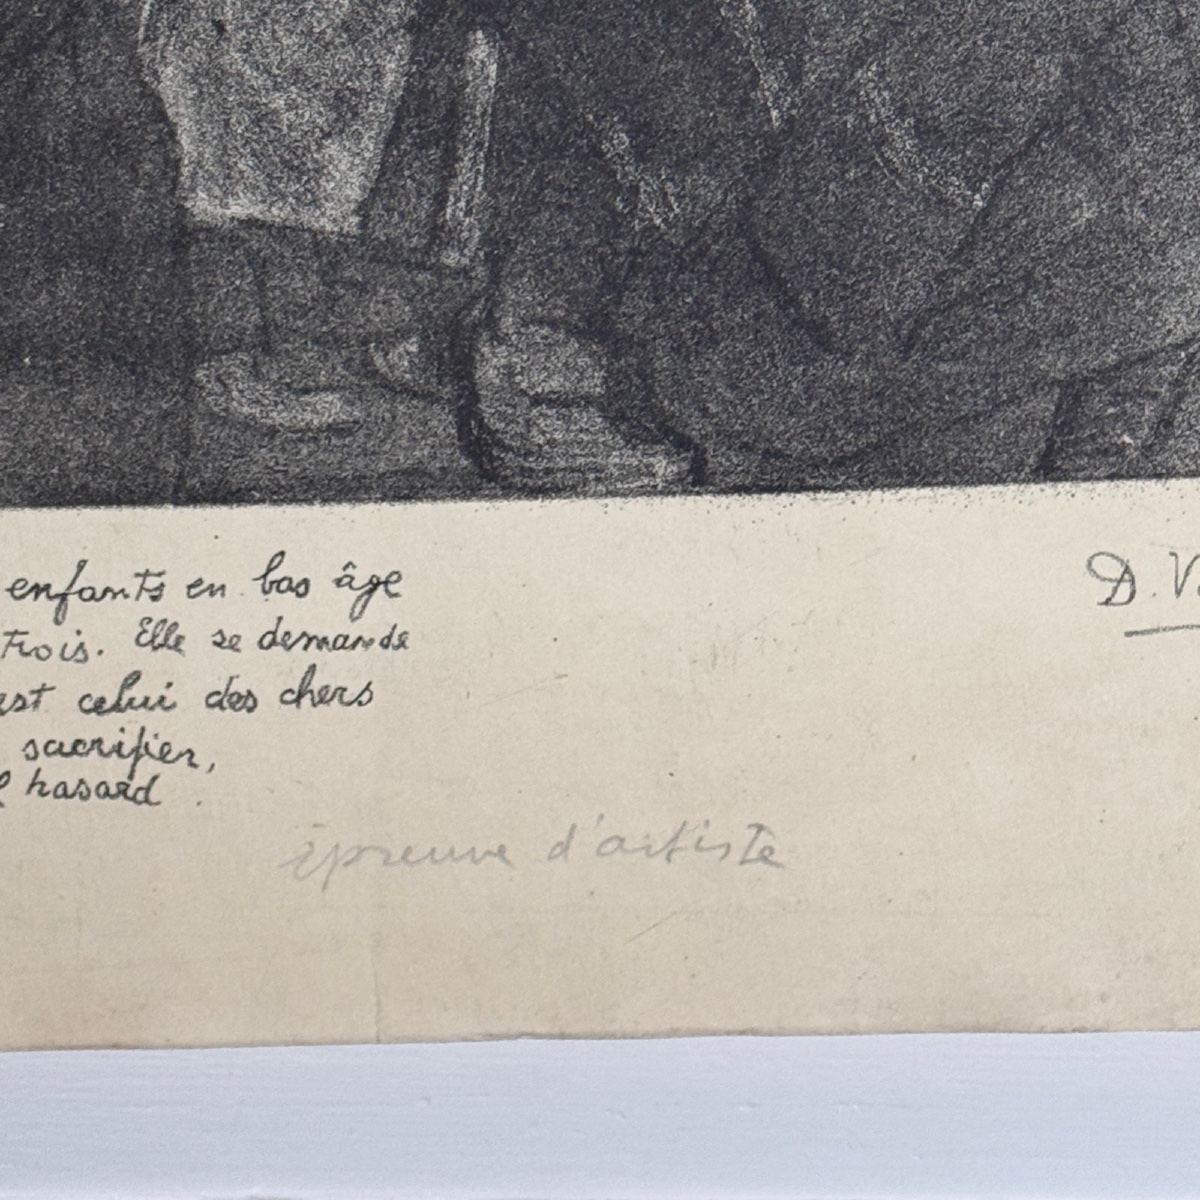 enfants en bas âge
trois. Elle se demande
est celui des chers
sacrifier,
hasard.
épreuve d'artiste
D. V